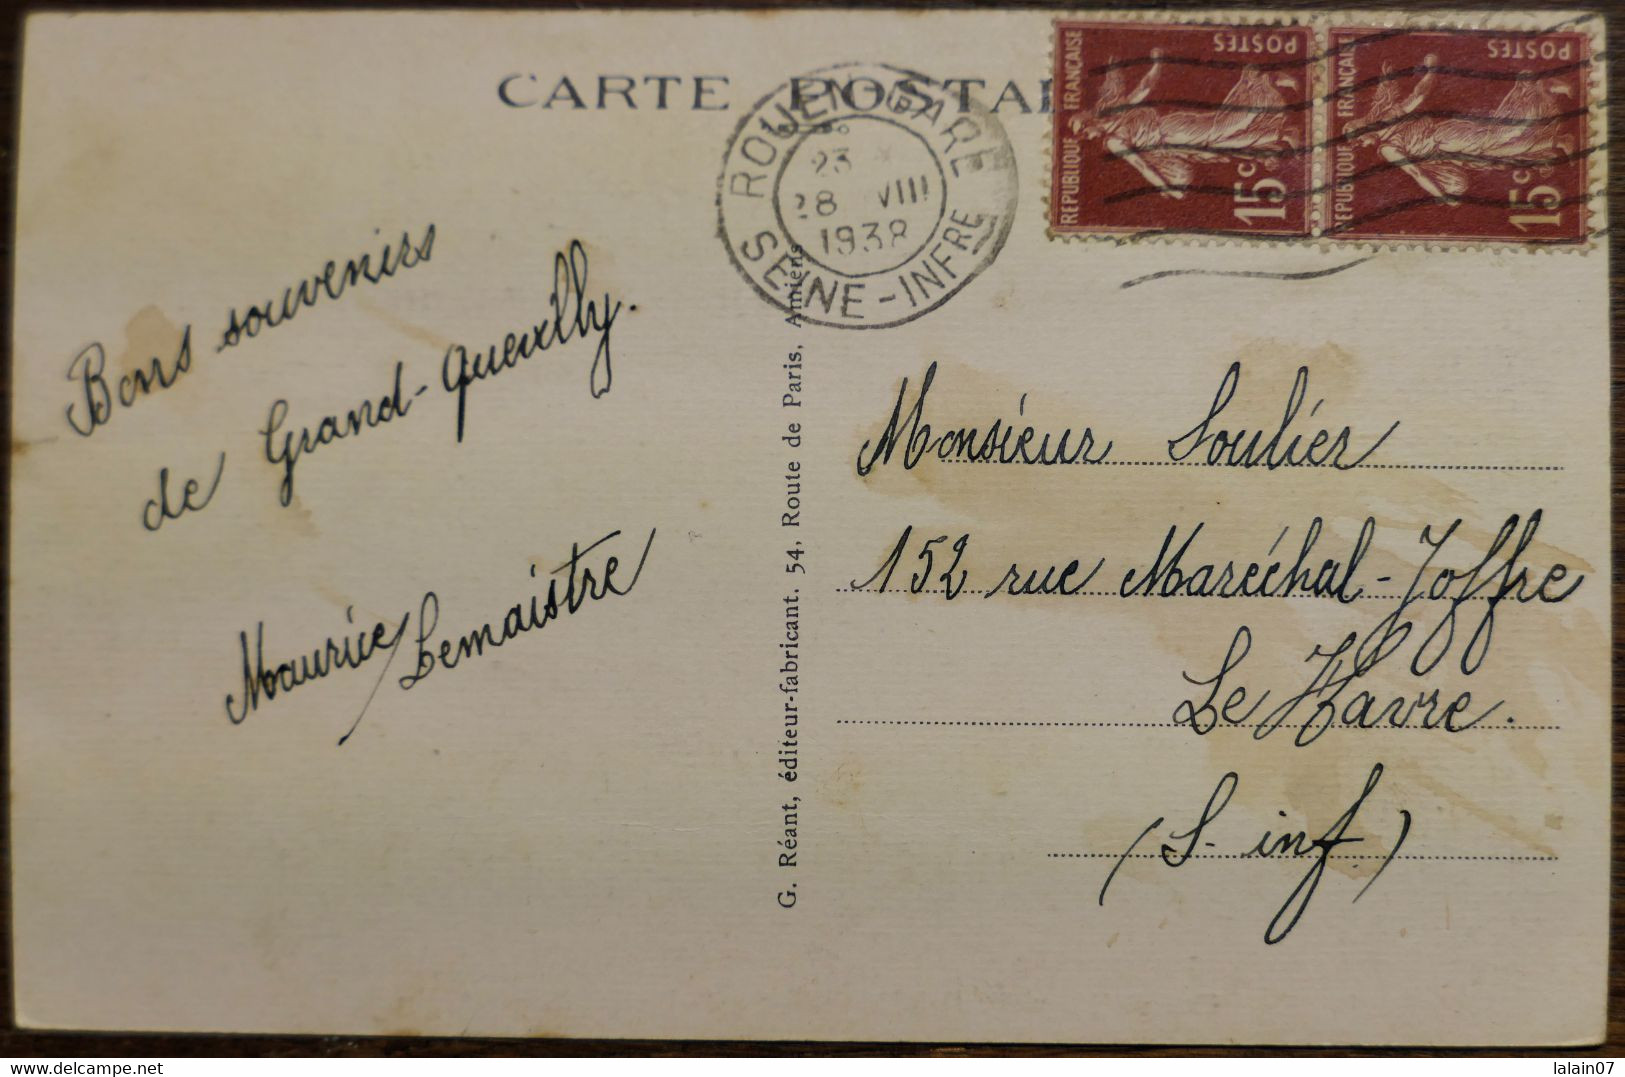 CARTE POSTA
ROUEN-GARE
23
28 VIII
1938
SEINE-INFRE
POSTES
RÉPUBLIQUE FRANÇAISE
15c
POSTES
RÉPUBLIQUE FRANÇAISE
15c
Bons souvenirs
de Grand-Quevilly.
Maurice Lemaistre
G. Réant, éditeur-fabricant. 54, Route de Paris, Amiens
Monsieur Soulier
152 rue Maréchal-Joffre
Le Havre.
(S. inf.)
delcampe.net
lalain07